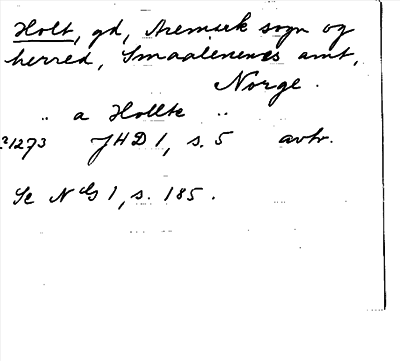 Holt, gd, Aremark sogn og
herred, Smaalenenes amt,
Norge.
" a Hollte "
?1273 JHD 1, s. 5 avtr.
Se NG 1, s. 185.